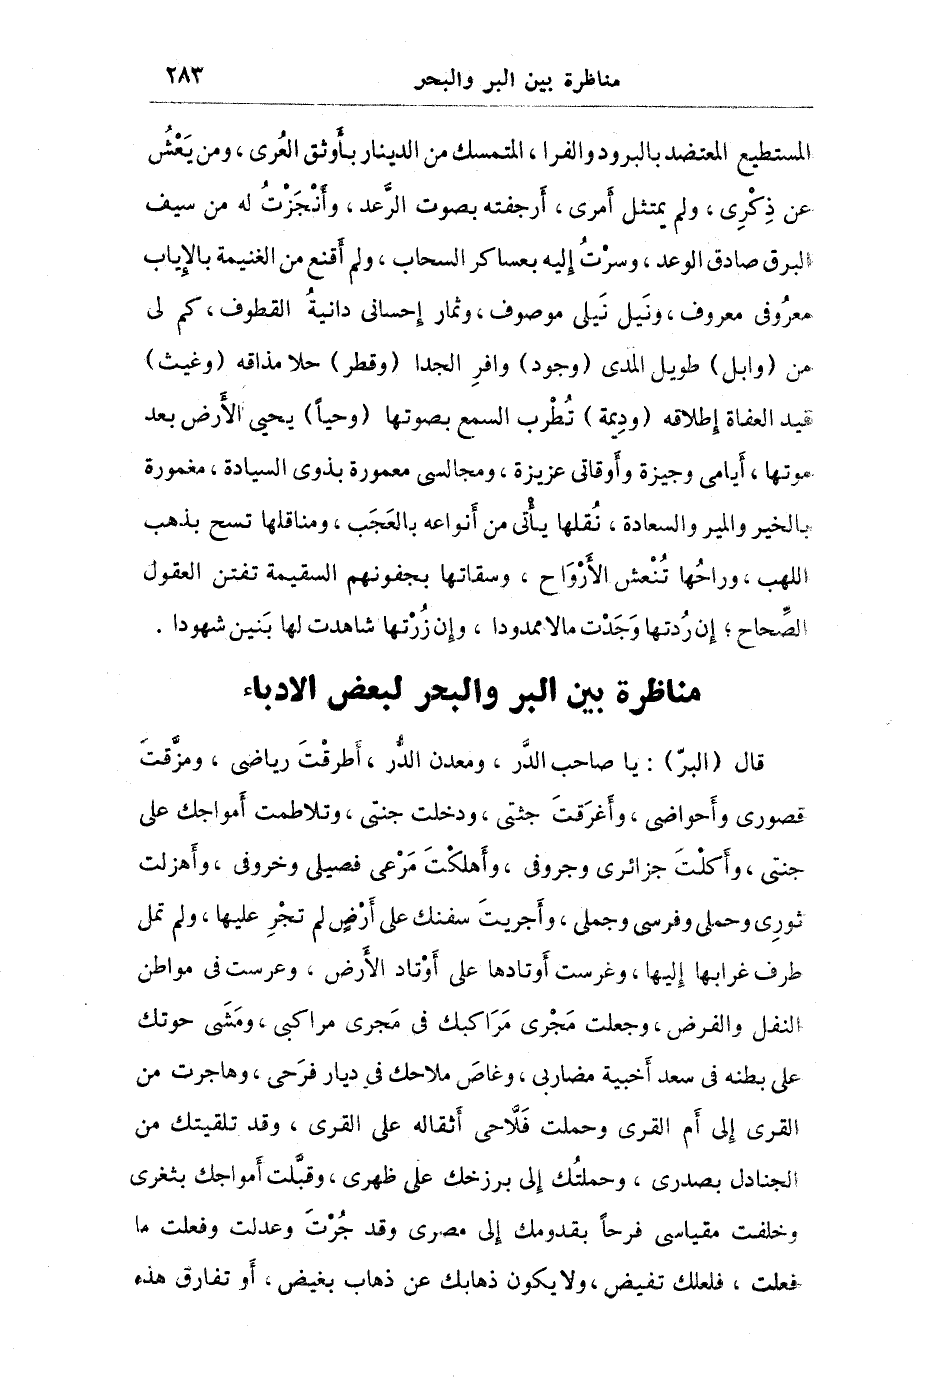 مناظرة بين البر والبحر ٢٨٣
المستطيع المعتضد بالبرود والفرا ، المتمسك من الدينار بأوثق العُرى ، ومن يَعْشُ
عن ذِكْرِى ، ولم يمتثل أمرى ، أرجفته بصوت الرَّعد ، وأنْجَزْتُ له من سيف
البرق صادق الوعد ، وسرْتُ إليه بعساكر السحاب ، ولم أقنع من الغنيمة بالإياب
معرُوفى معروف ، ونَيل نَيلى موصوف ، وثمار إحسانى دانيةُ القطوف ، كم لى
من (وابل) طويل المدى (وجود) وافرِ الجدا (وقطر) حلا مذاقه (وغيث)
قيد العفاة إطلاقه (ودِيمة) تُطْرب السمع بصوتها (وحياً) يحيى الأرض بعد
موتها ، أيامى وجيزة وأوقاتى عزيزة ، ومجالسى معمورة بذوى السيادة ، مغمورة
بالخير والمير والسعادة ، نُقلها يأتى من أنواعه بالعَجَب ، ومناقلها تسح بذهب
اللهب ، وراحُها تُنْعش الأرْوَاح ، وسقاتها بجفونهم السقيمة تفتن العقول
الصِّحاح ؛ إن رُدتها وَجَدْت مالا ممدودا ، وإن زُرْتها شاهدت لها بَنين شهودا .
مناظرة بين البر والبحر لبعض الادباء
قال (البرّ) : يا صاحب الدَّر ، ومعدن الدُّر ، أطرقْتَ رياضى ، ومزَّقتَ
قصورى وأحواضى ، وأغرَقتَ جثتى ، ودخلت جنتى ، وتلاطمت أمواجك على
جنتى ، وأكلْتَ جزائرى وجروفى ، وأهلكْتَ مَرْعى فصيلى وخروفى ، وأهزلت
ثورِى وحملى وفرسى وجملى ، وأجريتَ سفنك على أرْضٍ لم تجْرِ عليها ، ولم تمل
طرف غرابها إليها ، وغرست أوتادها على أوْتاد الأرض ، وعرست فى مواطن
النفل والفرض ، وجعلت مَجْرى مَرَاكبك فى مَجرى مراكبى ، ومَشَى حوتك
على بطنه فى سعد أخبية مضاربى ، وغاصَ ملاحك فى ديار فرَحى ، وهاجرت من
القرى إلى أم القرى وحملت فَلَّاحى أثقاله على القرى ، وقد تلقيتك من
الجنادل بصدرى ، وحملتُك إلى برزخك على ظهرى ، وقبَّلت أمواجك بثغرى
وخلفت مقياسى فرحاً بقدومك إلى مصرى وقد جُرْتَ وعدلت وفعلت ما
فعلت ، فلعلك تفيض ، ولا يكون ذهابك عن ذهاب بغيض ، أو تفارق هذه